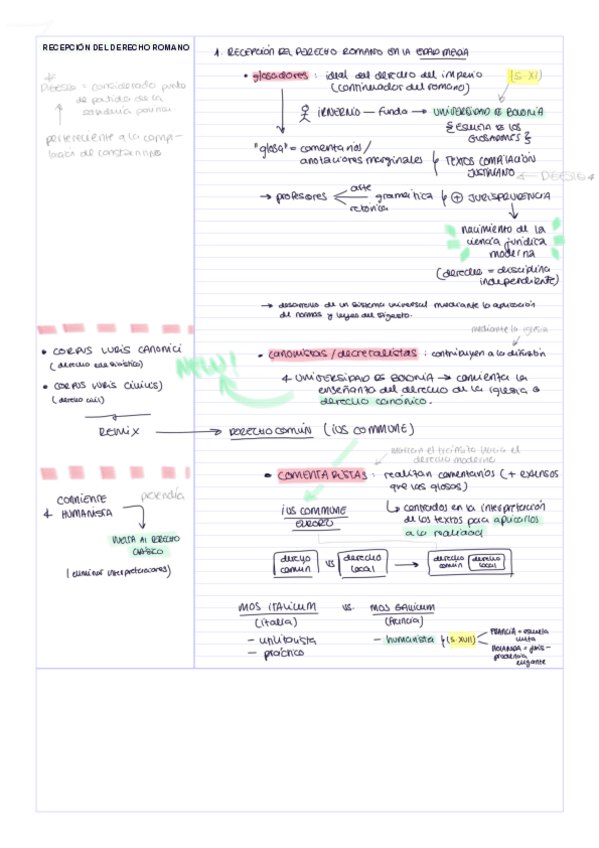 RECEPCIÓN DEL DERECHO ROMANO
1. RECEPCIÓN DEL DERECHO ROMANO EN LA EDAD MEDIA
• glosadores : ideal del derecho del imperio (s. XI)
(continuador del romano)
IRNERIO — Funda → UNIVERSIDAD DE BOLONIA
{ ESCUELA DE LOS
GLOSADORES }
"glosa" = comentarios /
anotaciones marginales
↳ TEXTOS COMPILACIÓN
JUSTINIANO ← DIGESTO
→ profesores
arte
gramática
retórica
↳ ⊕ JURISPRUDENCIA
nacimiento de la
ciencia jurídica
moderna
(derecho = disciplina
independiente)
→ desarrollo de un sistema universal mediante la aplicación
de normas y leyes del digesto.
*
DIGESTO = considerado punto
de partida de la
perteneciente a la compi-
lación de
mediante la iglesia
• canonistas / decretalistas : contribuyen a la difusión
UNIVERSIDAD DE BOLONIA → comienza la
enseñanza del derecho de la iglesia o
derecho canónico.
NEW!
• CORPUS IURIS CANONICI
(derecho eclesiástico)
• CORPUS IURIS CIVILIS
(derecho civil)
REMIX → DERECHO COMÚN (IUS COMMUNE)
marcan el tránsito hacia el
derecho moderno
• COMENTARISTAS : realizan comentarios (+ extensos
que las glosas)
↳ centrados en la interpretación
de los textos para aplicarlos
a la realidad
IUS COMMUNE
EUROPEO
CORRIENTE
HUMANISTA
pretendía
VUELTA AL DERECHO
CLÁSICO
(eliminar interpretaciones)
derecho
común
vs
derecho
local
→
derecho
común
derecho
local
MOS ITALICUM vs. MOS GALLICUM
(Italia) (Francia)
— utilitarista
— práctico
— humanista (s. XVI)
FRANCIA = escuela
culta
HOLANDA = juris-
prudencia
elegante